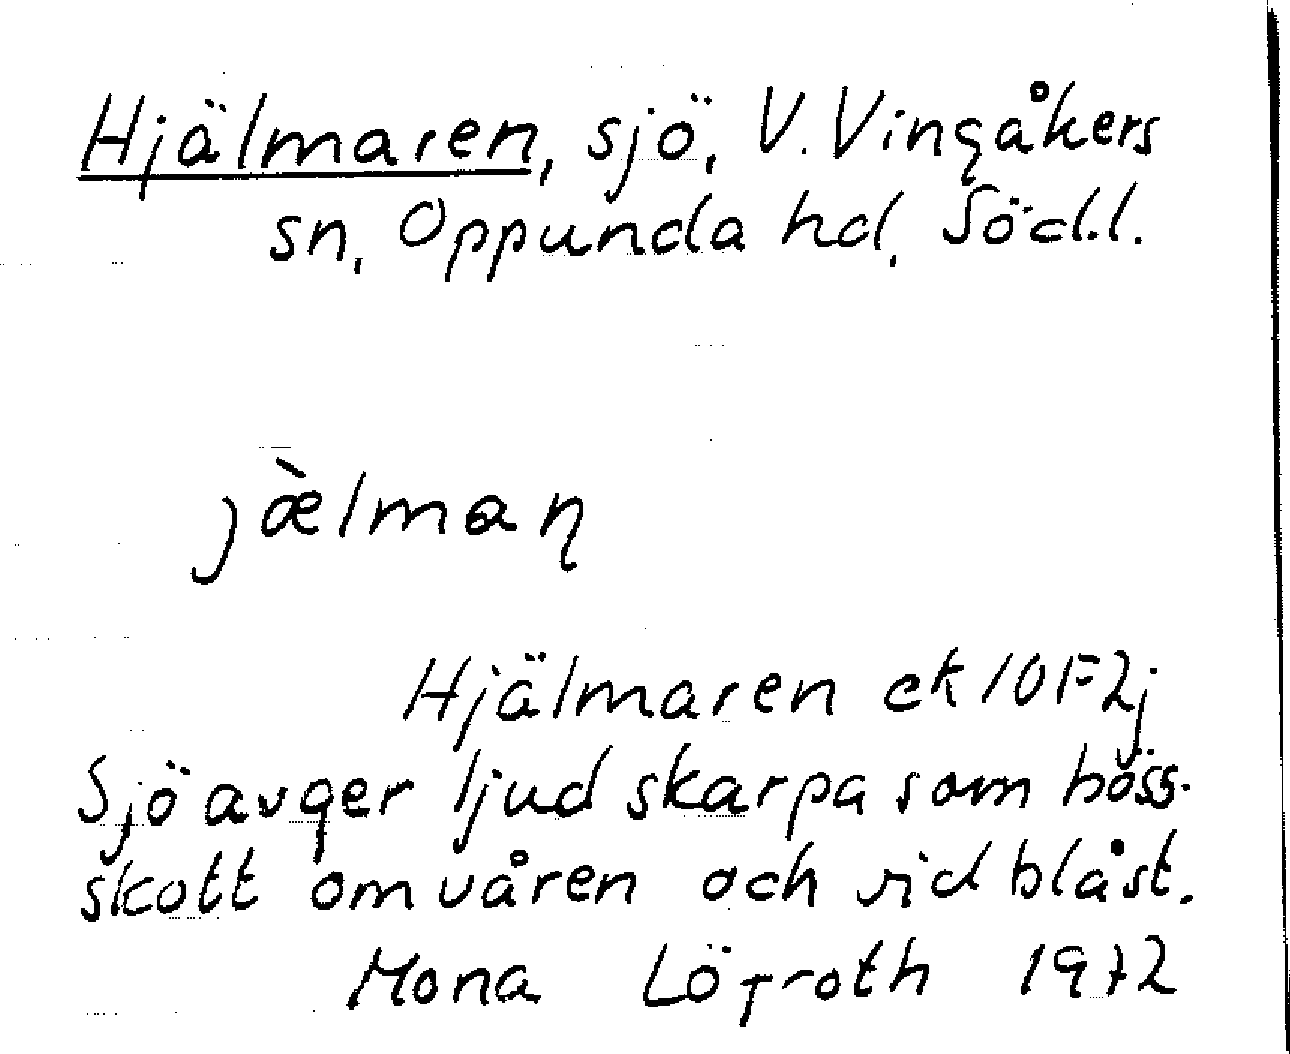 Hjälmaren, sjö, V. Vingåkers
sn, Oppunda hd, Södl.
jæ̀lmaɳ
Hjälmaren ek 10F2j
Sjö avger ljud skarpa som böss-
skott om våren och vid blåst.
Mona Löfroth 1972